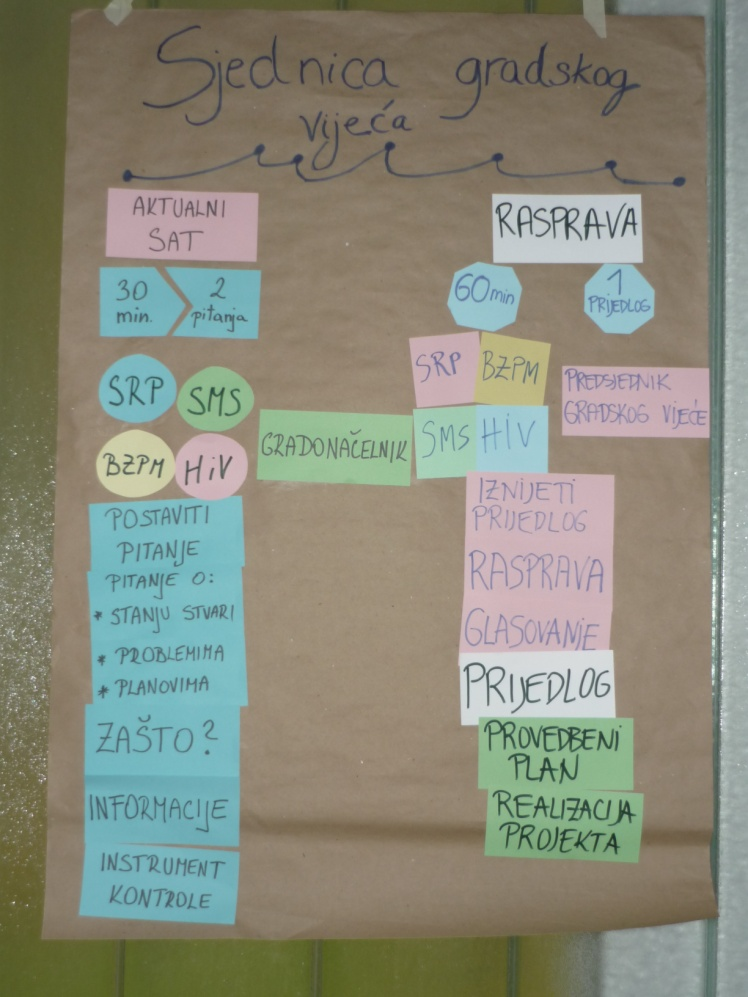 Sjednica gradskog
vijeća
AKTUALNI
SAT
30
min.
2
pitanja
SRP
SMS
BZPM
HiV
POSTAVITI
PITANJE
PITANJE O:
* STANJU STVARI
* PROBLEMIMA
* PLANOVIMA
ZAŠTO?
INFORMACIJE
INSTRUMENT
KONTROLE
GRADONAČELNIK
RASPRAVA
60 min
1
PRIJEDLOG
SRP
BZPM
SMS
HiV
PREDSJEDNIK
GRADSKOG VIJEĆE
IZNIJETI
PRIJEDLOG
RASPRAVA
GLASOVANJE
PRIJEDLOG
PROVEDBENI
PLAN
REALIZACIJA
PROJEKTA